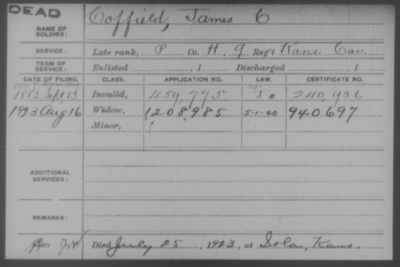 DEAD
NAME OF SOLDIER: Coffield, James C
SERVICE: Late rank, P Co. H, 9 Reg't Kans. Cav.
TERM OF SERVICE: Enlisted , 1 Discharged , 1
DATE OF FILING. CLASS. APPLICATION NO. LAW. CERTIFICATE NO.
1882 Sept 13 Invalid, 459,775 240,936
1923 Aug 16 Widow, 1208,985 5-1-20 940,697
Minor,
ADDITIONAL SERVICES:
REMARKS:
Died July 25, 1923, at Kans.